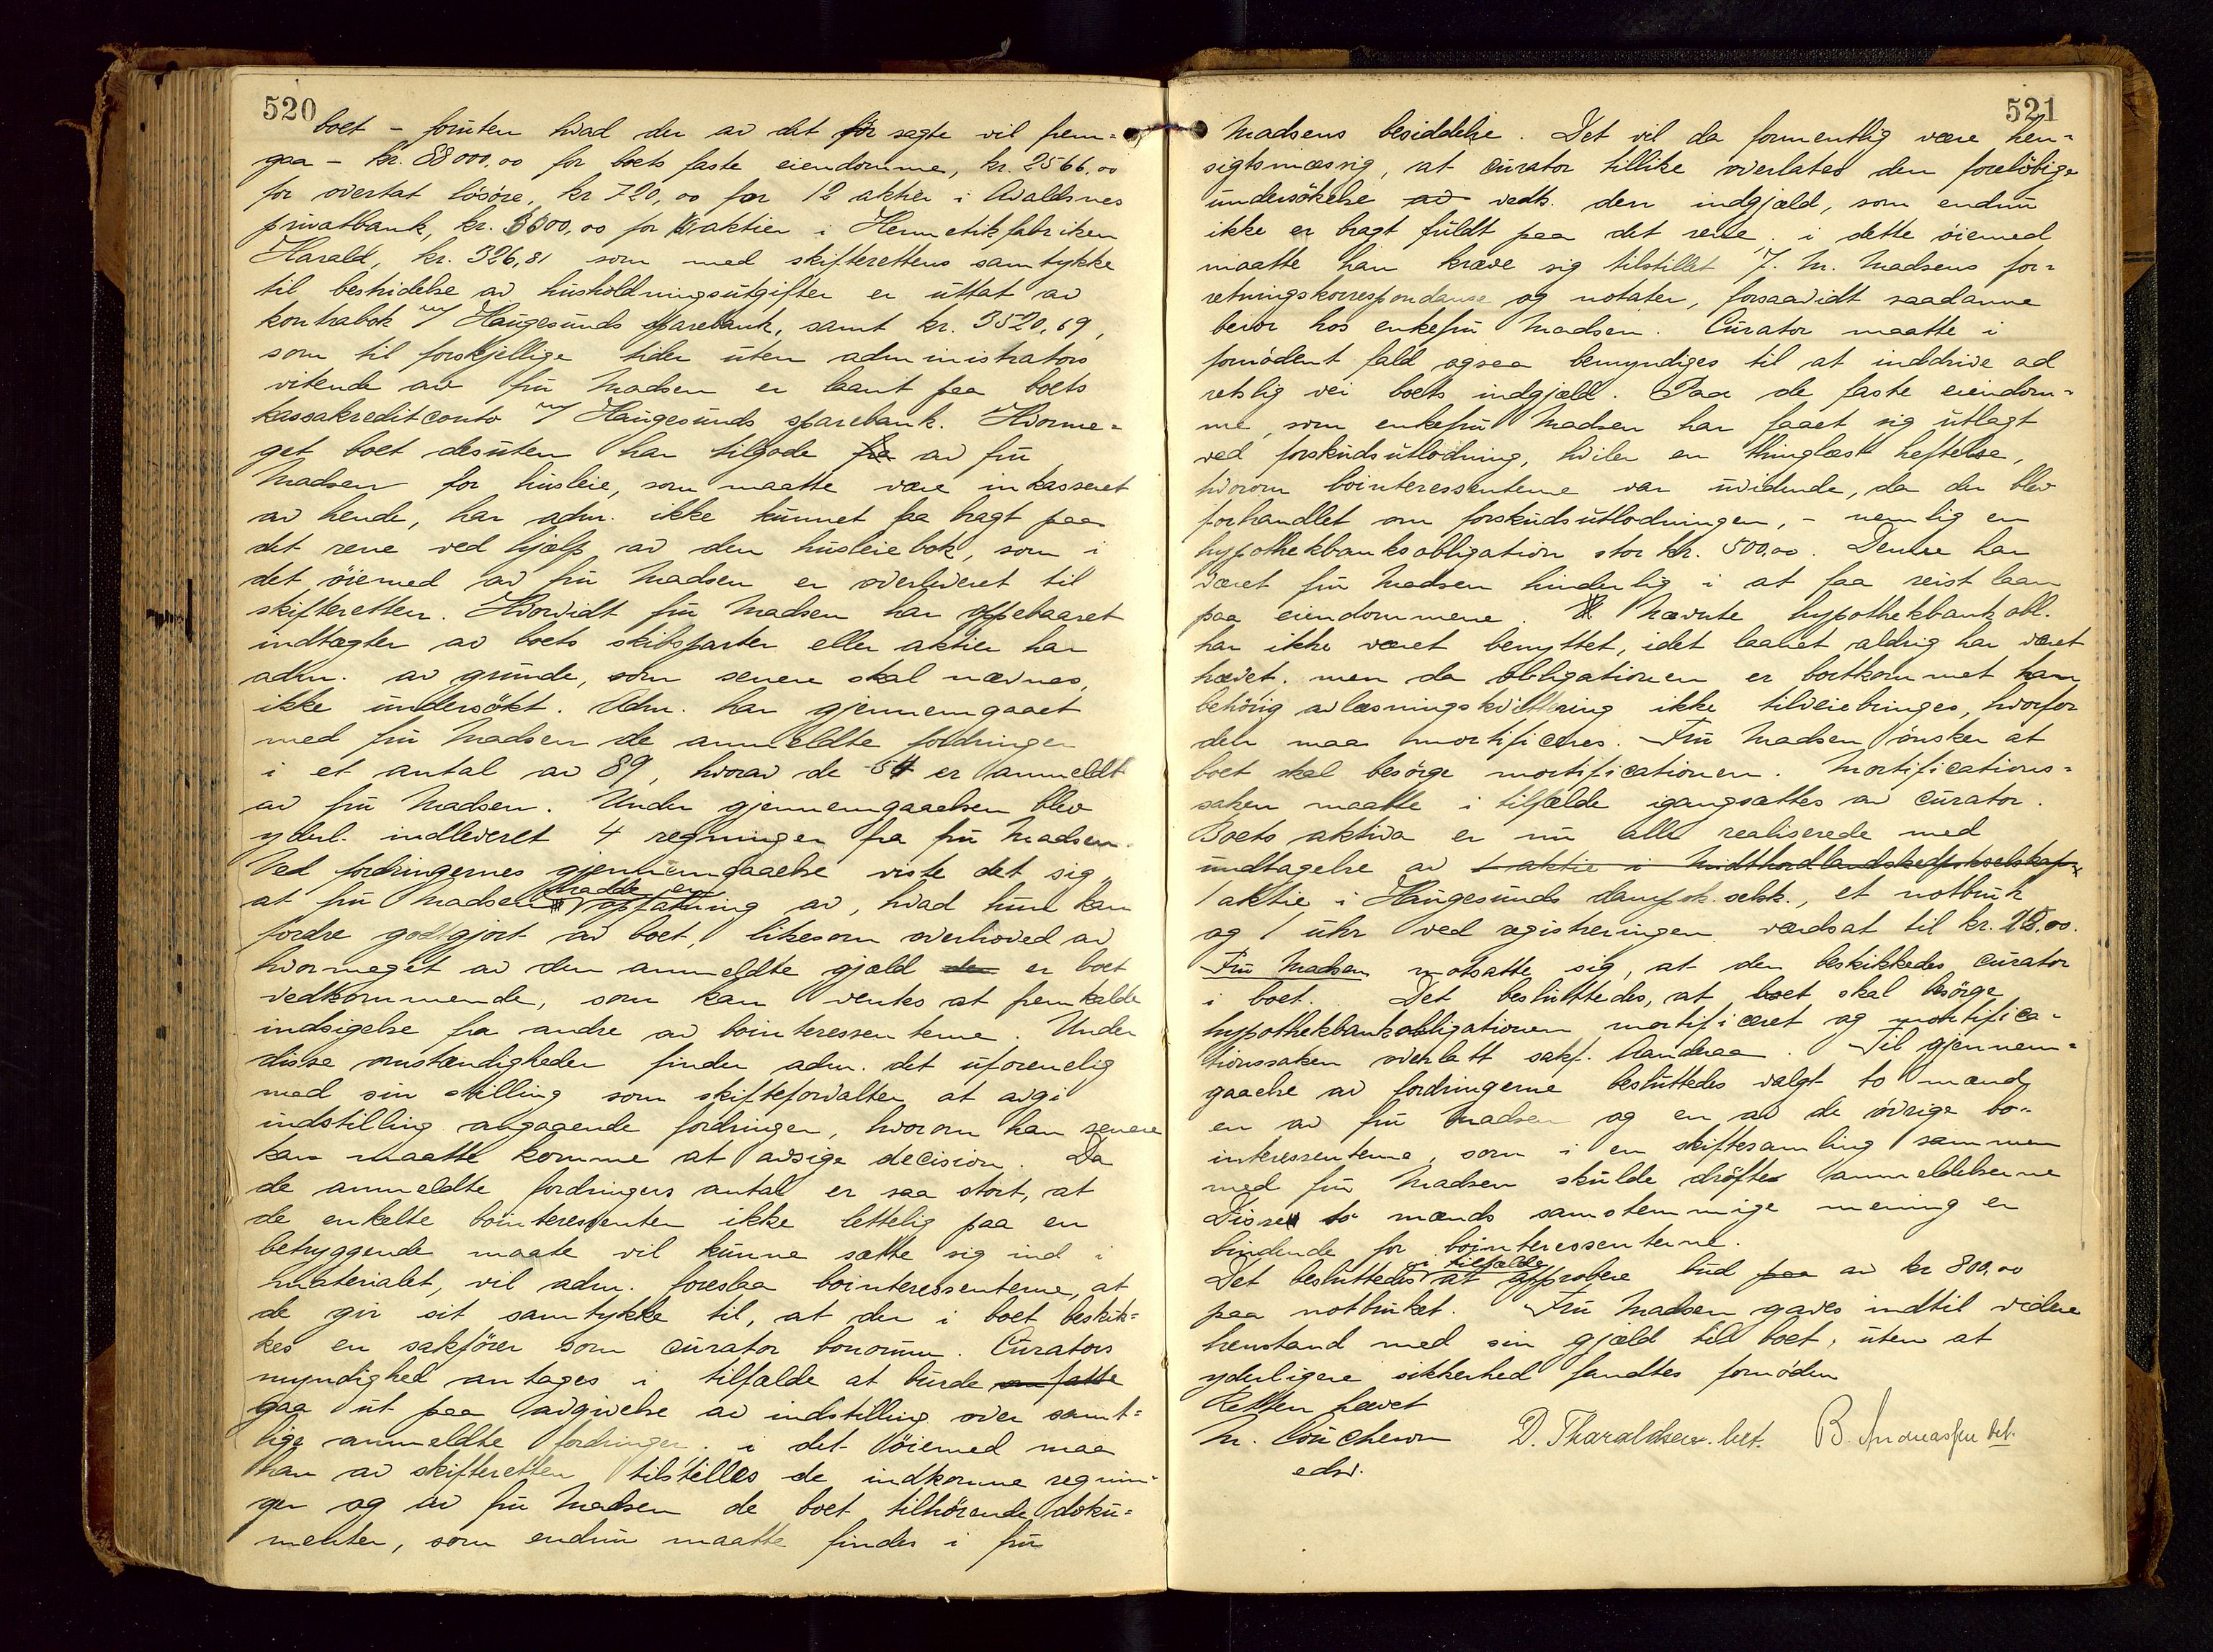 520
boet - foruten hvad der av det før sagte vil frem-
gaa - kr. 88000,00 for boets faste eiendomme, kr. 2566,00
for overtat lösöre, kr 720,00 for 12 aktier i Avaldsnes
privatbank, kr. 3600,00 for aktier i Hermetikfabriken
Harald, kr. 326,81 som med skifterettens samtykke
til bestridelse av husholdningsutgifter er uttat av
kontrabok m/ Haugesunds sparebank, samt kr. 3520,69,
som til forskjellige tider uten administrators
vitende av fru Madsen er laant paa boets
kassakreditconto m/ Haugesunds sparebank. Hvorme-
get boet desuten har tilgode fra av fru
Madsen for husleie, som maatte være inkasseret
av hende, har adm. ikke kunnet faa bragt paa
det rene ved hjælp av den husleiebok, som i
det öiemed av fru Madsen er overleveret til
skifteretten. Hvorvidt fru Madsen har oppebaaret
indtægter av boets skibsparter eller aktier har
adm. av grunde, som senere skal nævnes,
ikke undersökt. Adm. har gjennemgaaet
med fru Madsen de anmeldte fordringer
i et antal av 89, hvorav de 54 er anmeldt
av fru Madsen. Under gjennemgaaelsen blev
yderl. indleveret 4 regninger fra fru Madsen.
Ved fordringernes gjennemgaaelse viste det sig,
at fru Madsen hadde en opfatning av, hvad hun kan
fordre godtgjort av boet, likesom overhoved av
hvormeget av den anmeldte gjæld der er boet
vedkommende, som kan ventes at fremkalde
indsigelse fra andre av bointeressenterne. Under
disse omstændigheder finder adm. det uforenelig
med sin stilling som skifteforvalter at avgi
indstilling angaaende fordringer, hvorom han senere
kan maatte komme at avsige decision. Da
de anmeldte fordringers antal er saa stort, at
de enkelte bointeressenter ikke lettelig paa en
betryggende maate vil kunne sætte sig ind i
materialet, vil adm. foreslaa bointeressenterne, at
de gir sit samtykke til, at der i boet beskik-
kes en sakförer som curator bonorum. Curators
myndighed antages i tilfælde at burde omfatte
gaa ut paa avgivelse av indstilling over samt-
lige anmeldte fordringer. i det öiemed maa
han av skifteretten tilstilles de indkomne regnin-
ger og av fru Madsen de boet tilhörende doku-
menter, som endnu maatte findes i fru
521
Madsens besiddelse. Det vil da formentlig være hen-
sigtsmæssig, at curator tillike overlates den forelöbige
undersökelse av vedk. den indgjæld, som endnu
ikke er bragt fuldt paa det rene. i dette öiemed
maatte han kræve sig tilstillet J. M. Madsens for-
retningskorrespondanse og notater, forsaavidt saadanne
beror hos enkefru Madsen. Curator maatte i
fornödent fald ogsaa bemyndiges til at inddrive ad
retslig vei boets indgjæld. Paa de faste eiendom-
me, som enkefru Madsen har faaet sig utlagt
ved forskudsutlodning, hviler en thinglæst heftelse,
hvorom bointeressenterne var uvidende, da der blev
forhandlet om forskudsutlodningen, - nemlig en
hypothekbanksobligation stor kr. 500,00. Denne har
været fru Madsen hinderlig i at faa reist laan
paa eiendommene. Nævnte hypothekbankobl.
har ikke været benyttet, idet laanet aldrig har været
hævet. men da obligationen er bortkommet kan
behörig avlæsningskvittering ikke tilveiebringes, hvorfor
den maa mortificeres. Fru Madsen önsker at
boet skal besörge mortificationen. Mortifications-
saken maatte i tilfælde igangsættes av curator.
Boets aktiva er nu alle realiserede med
undtagelse av 1 aktie i Midthordlandskedampskselskap
1 aktie i Haugesunds dampsk. selsk., et notbruk
og 1 uhr ved registreringen værdsat til kr. 15,00.
Fru Madsen motsatte sig, at der beskikkedes curator
i boet. Det besluttedes, at boet skal besörge
hypothekbankobligationen mortificeret og mortifica-
tionssaken overlatt sakf. Aandraa. Til gjennem-
gaaelse av fordringerne besluttedes valgt to mænd,
en av fru Madsen og en av de övrige bo-
interessenterne, som i en skiftesamling sammen
med fru Madsen skulde dröfte anmeldelserne
Disse to mænds samstemmige mening er
bindende for bointeressenterne.
Det besluttedes i tilfælde at approbere bud paa av kr 800,00
paa notbruket. Fru Madsen gaves indtil videre
henstand med sin gjæld til boet, uten at
yderligere sikkerhed fandtes fornöden
Retten hævet
M. Coucheron D. Tharaldsen. bet. B. Andreassen bet.
edsv.